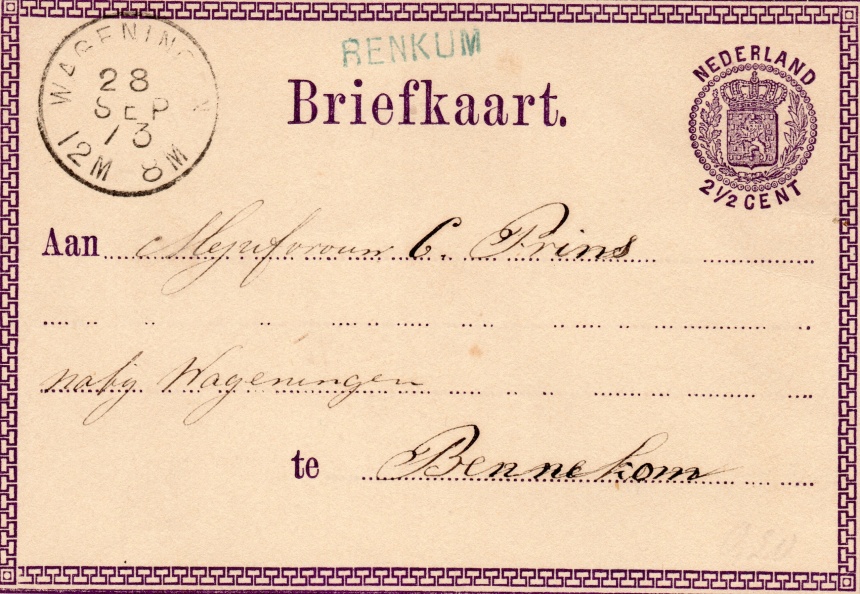 WAGENINGEN
28
SEP
73
12M 8M
RENKUM
Briefkaart.
NEDERLAND
2½ CENT
Aan Mejufvrouw C. Prins
nabij Wageningen
te Bennekom